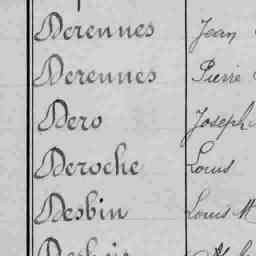 Derennes Jean
Derennes Pierre
Dero Joseph
Deroche Louis
Desbin Louis M